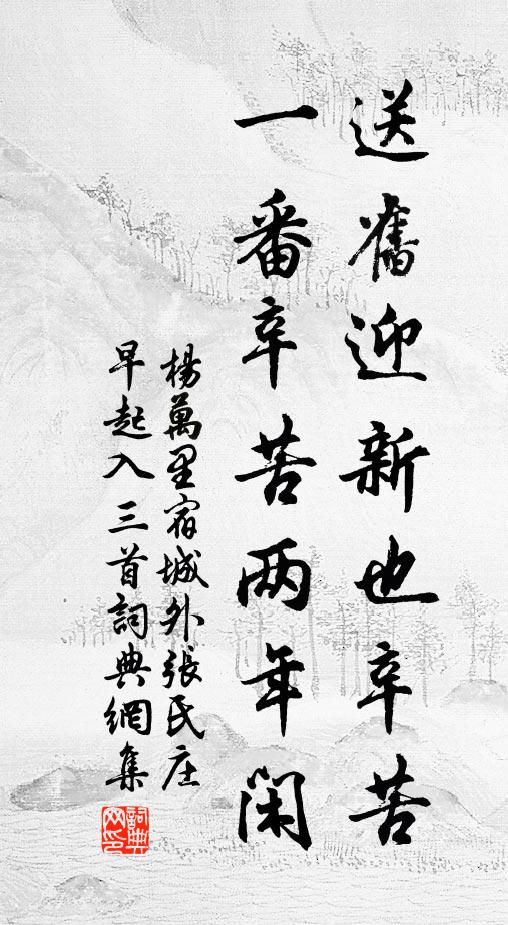 送舊迎新也辛苦
一番辛苦两年閑
楊萬里宿城外張氏庄
早起入三首詞典網集
詞典网印